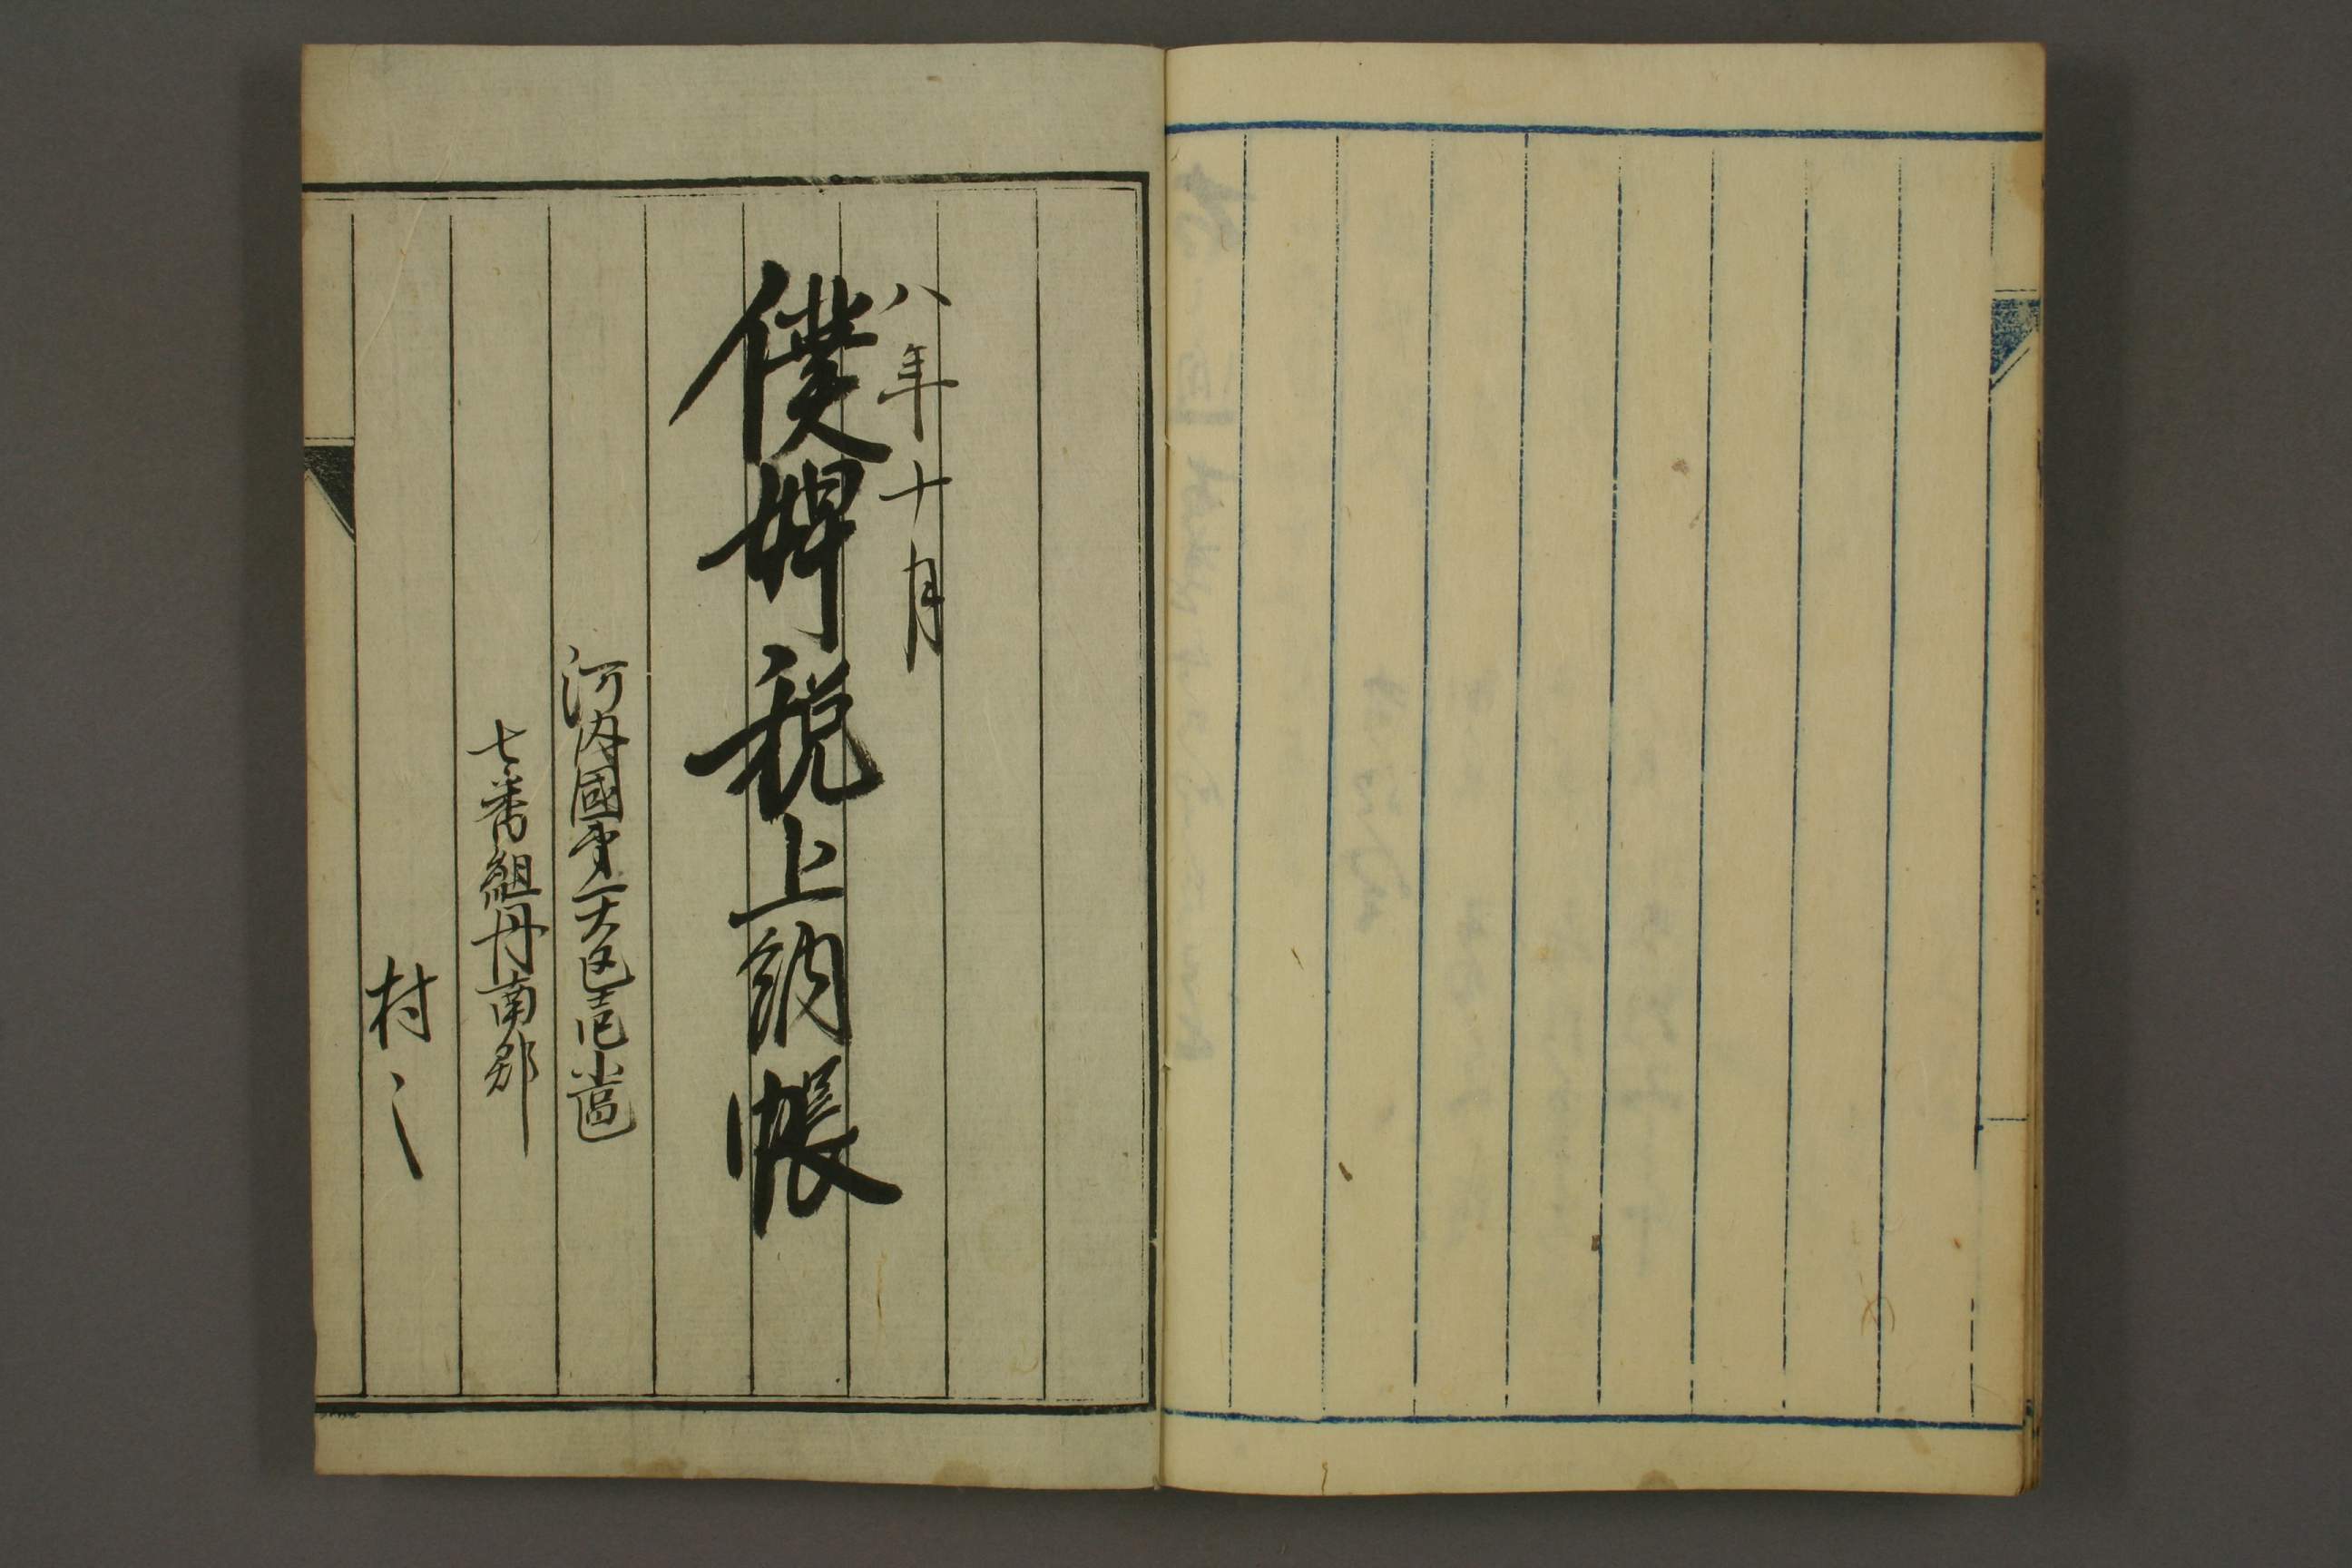 八年十月
僕婢税上納帳
河内國第一大区壱小区
七番組丹南郡
村〻